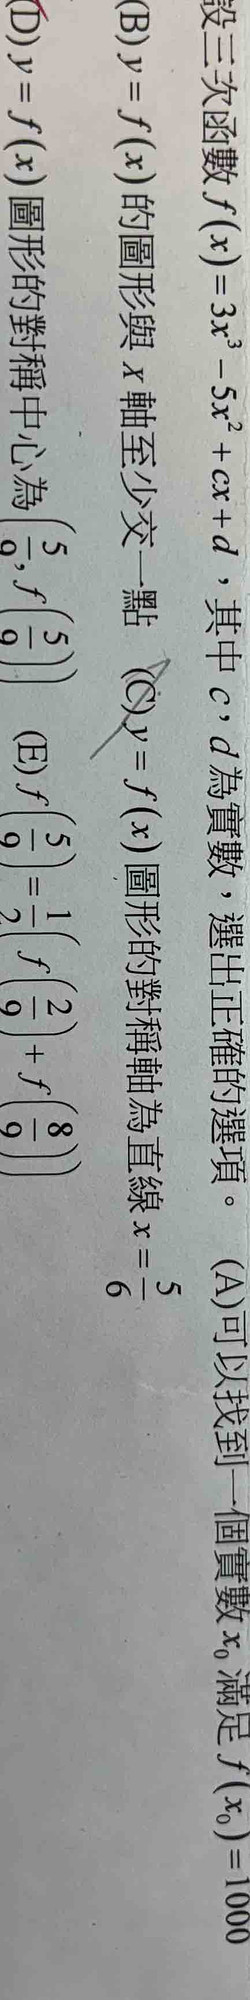 設三次函數 f(x)=3x³-5x²+cx+d，其中 c，d 為實數，選出正確的選項。 (A)可以找到一個實數 x₀ 滿足 f(x₀)=1000
(B) y=f(x)的圖形與 x 軸至少交一點 (C) y=f(x)圖形的對稱軸為直線 x=5/6
(D) y=f(x)圖形的對稱中心為(5/9, f(5/9)) (E) f(5/9)=1/2(f(2/9)+f(8/9))